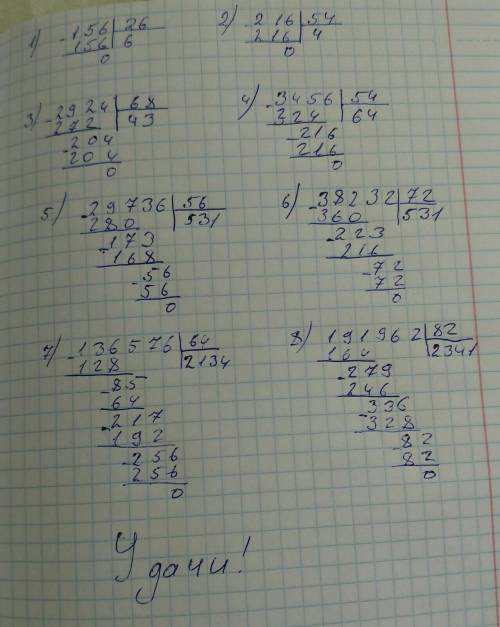 1) -156 | 26
156 | 6
0
2) -216 | 54
216 | 4
0
3) -2924 | 68
272 | 43
-204
204
0
4) -3456 | 54
324 | 64
-216
216
0
5) -29736 | 56
280 | 531
-173
168
-56
56
0
6) -38232 | 72
360 | 531
-223
216
-72
72
0
7) -136576 | 64
128 | 2134
-85
64
-217
192
-256
256
0
8) 191962 | 82
164 | 2341
-279
246
-336
328
-82
82
0
Удачи!